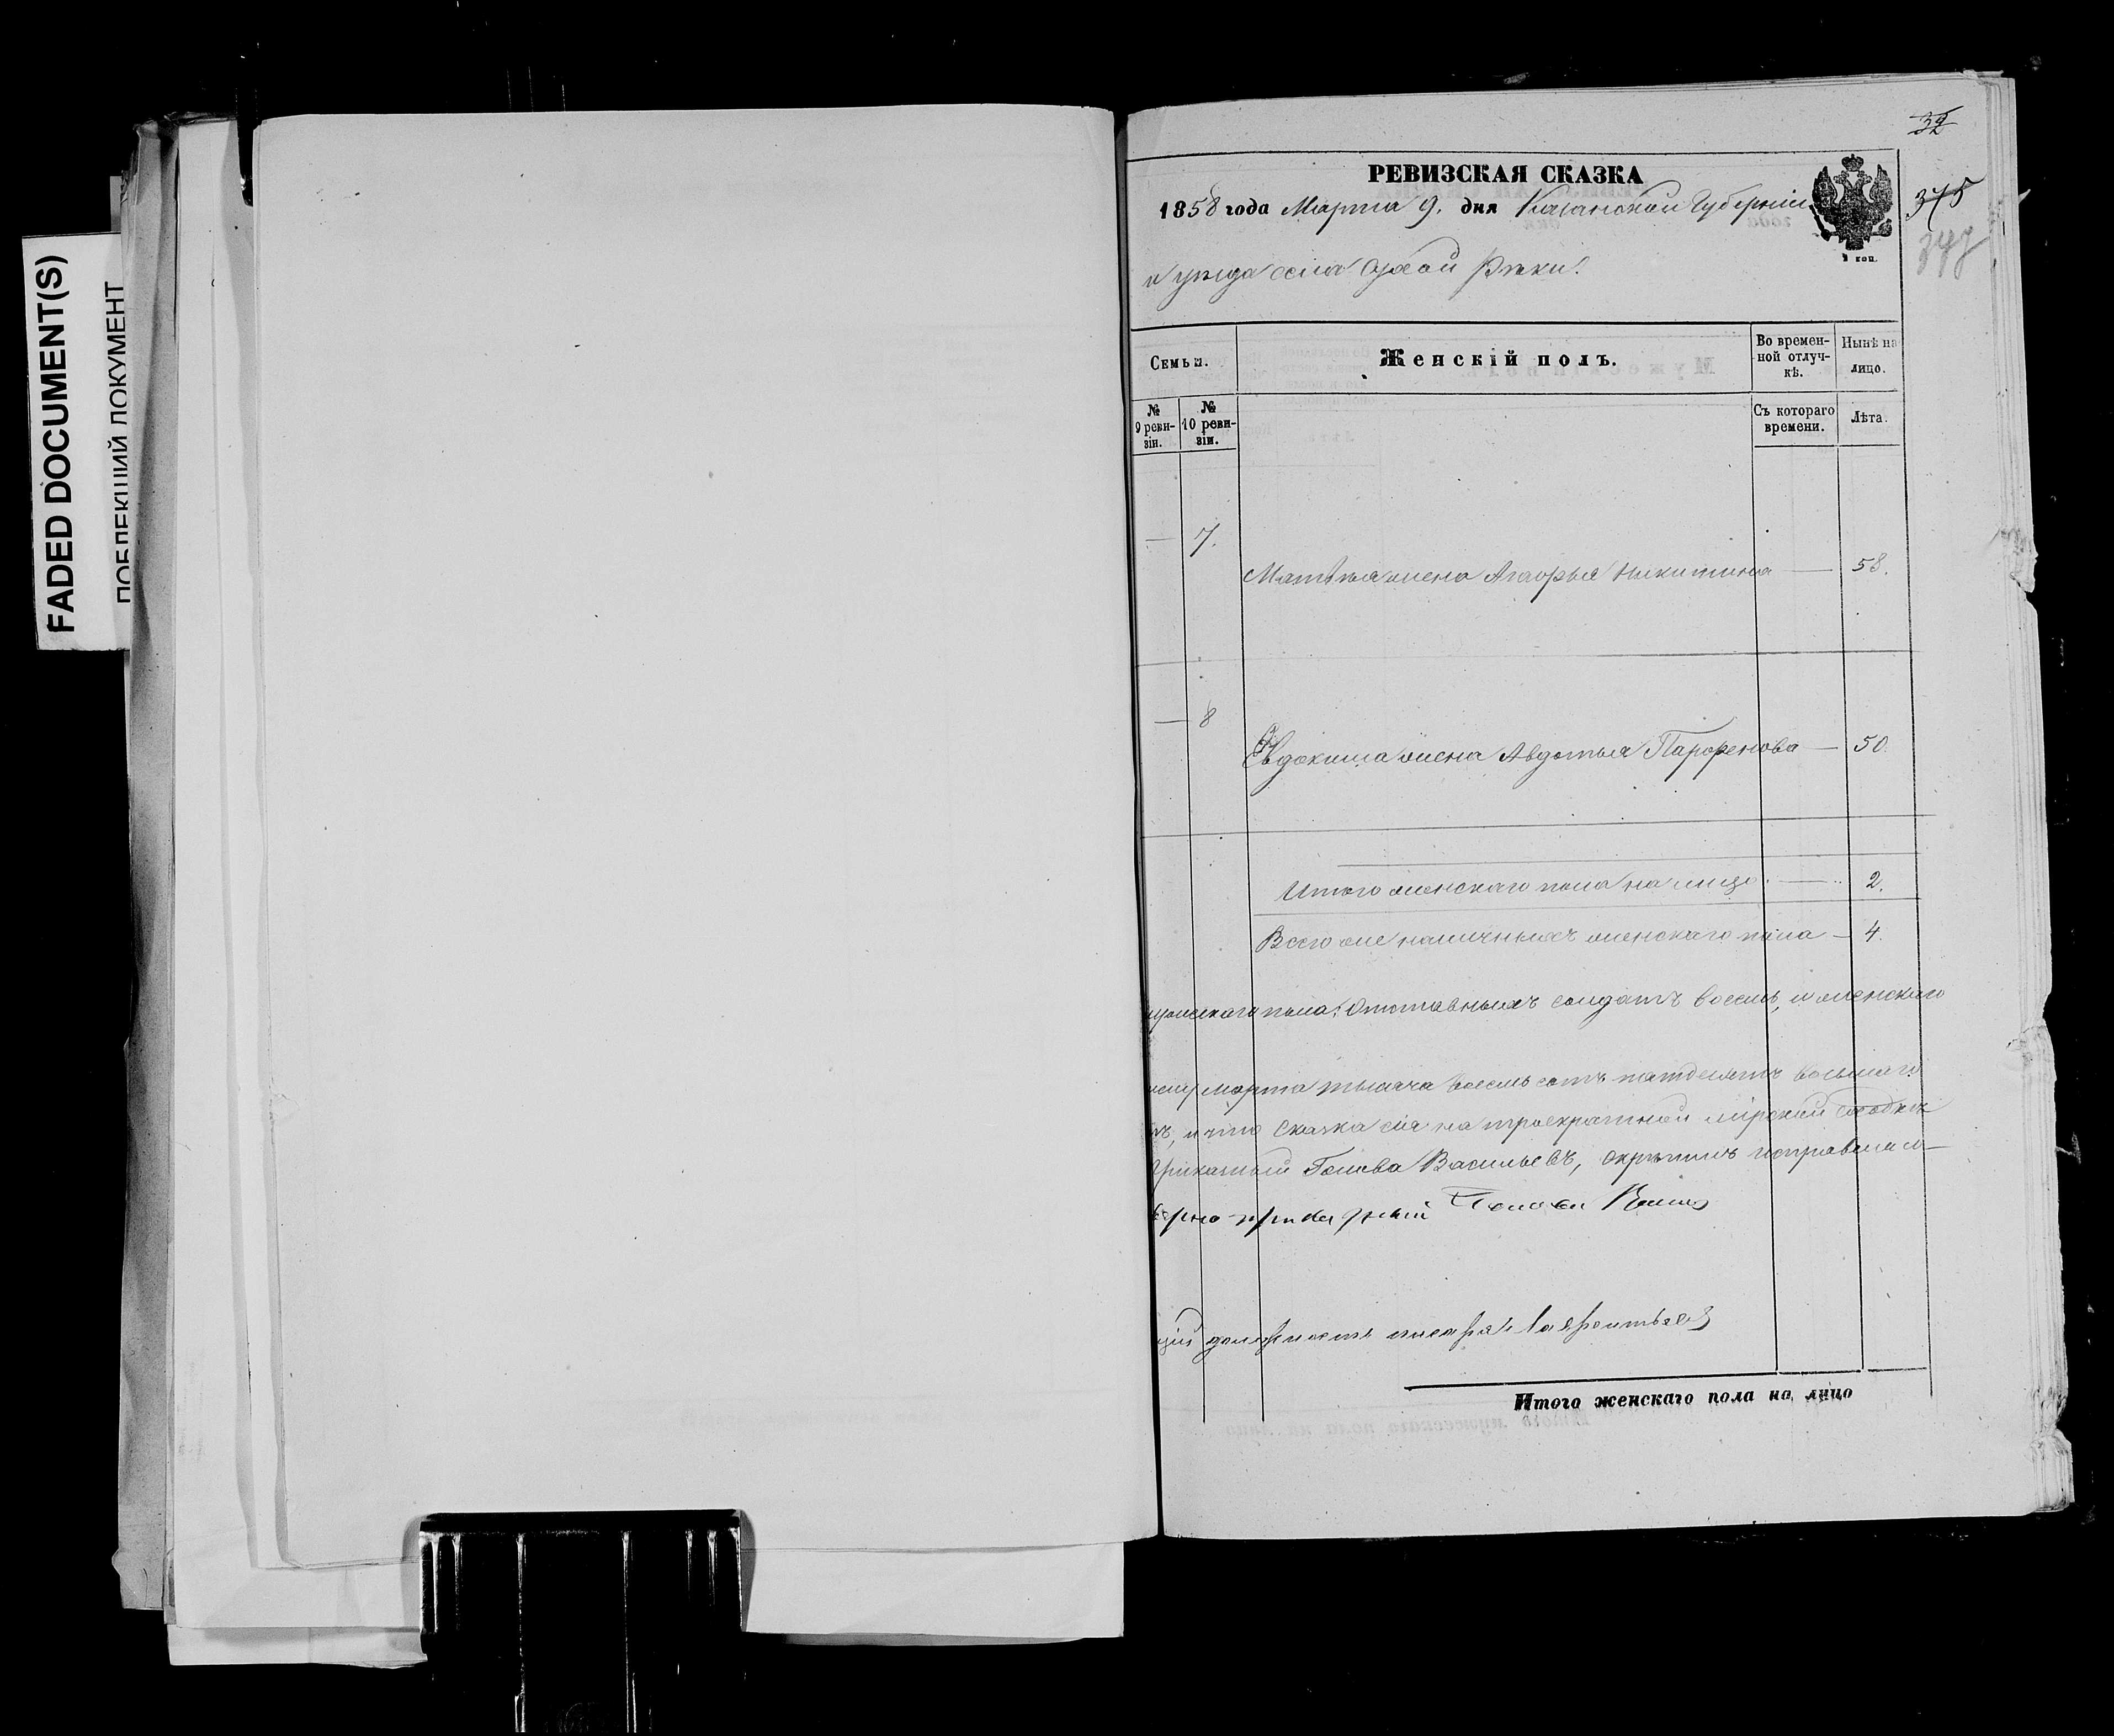 FADED DOCUMENT(S)
ПОБЛЕКШИЙ ДОКУМЕНТ
32
РЕВИЗСКАЯ СКАЗКА
1858 года Марта 9. дня Казанской Губерніи
375
и уѣзда села Сухой Рѣки.
Семьи.
Женскій полъ.
Во времен-
ной отлуч-
кѣ.
Нынѣ на
лицо.
№
9 реви-
зіи.
№
10 реви-
зіи.
Съ котораго
времени.
Лѣта.
— 7.
Матвѣя жена Агафья Никитина — 58.
— 8
Евдокима жена Авдотья Парфенова — 50.
Итого женскаго пола на лицо — 2.
Всего же наличныхъ женскаго пола — 4.
мужескаго пола: Отставныхъ солдатъ восемь, и женскаго
Марта тысяча восемь сотъ пятдесятъ восьмаго
и что Сказка сія на троекратной мірской сходкѣ
Голова Васильевъ, скрѣпилъ исправляю-
Голова
щій должность писаря Лаврентьевъ
Итого женскаго пола на лицо